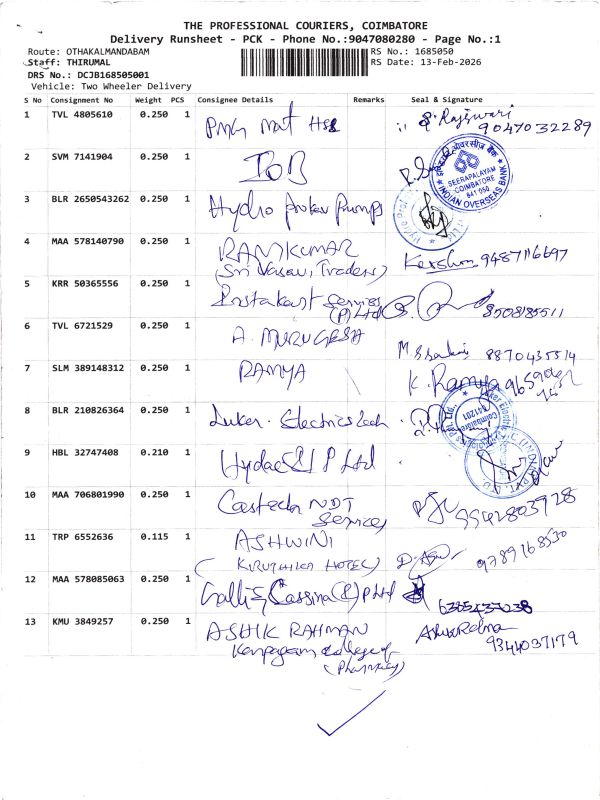 THE PROFESSIONAL COURIERS, COIMBATORE
Delivery Runsheet - PCK - Phone No.:9047080280 - Page No.:1
Route: OTHAKALMANDABAM
RS No.: 1685050
Staff: THIRUMAL
RS Date: 13-Feb-2026
DRS No.: DCJB168505001
Vehicle: Two Wheeler Delivery
S No Consignment No Weight PCS Consignee Details Remarks Seal & Signature
1 TVL 4805610 0.250 1 PMG Mat Hss S. Rajeswari
9047032289
2 SVM 7141904 0.250 1 IOB
SEERAPALAYAM
COIMBATORE
641 050
INDIAN OVERSEAS BANK
3 BLR 2650543262 0.250 1 Hydro Pumps
4 MAA 578140790 0.250 1 RAMKUMAR
(Sri Vasavi Traders) 9487116697
5 KRR 50365556 0.250 1 Instakart Services
(P) Ltd 8508185511
6 TVL 6721529 0.250 1 A. MURUGESA
8870435514
7 SLM 389148312 0.250 1 RAMYA K. Ramya
8 BLR 210826364 0.250 1 Luker Electric Tech
Coimbatore
641201
9 HBL 32747408 0.210 1 Hydac (I) P Ltd
10 MAA 706801990 0.250 1 Castech NDT
Services 9942803928
11 TRP 6552636 0.115 1 ASHWINI
(KIRUTHIKA HOTEL) 9789168530
12 MAA 578085063 0.250 1 Galli & Cassina (I) P Ltd
13 KMU 3849257 0.250 1 ASHIK RAHMAN
Karpagam College of
(Pharmacy) 9344037179